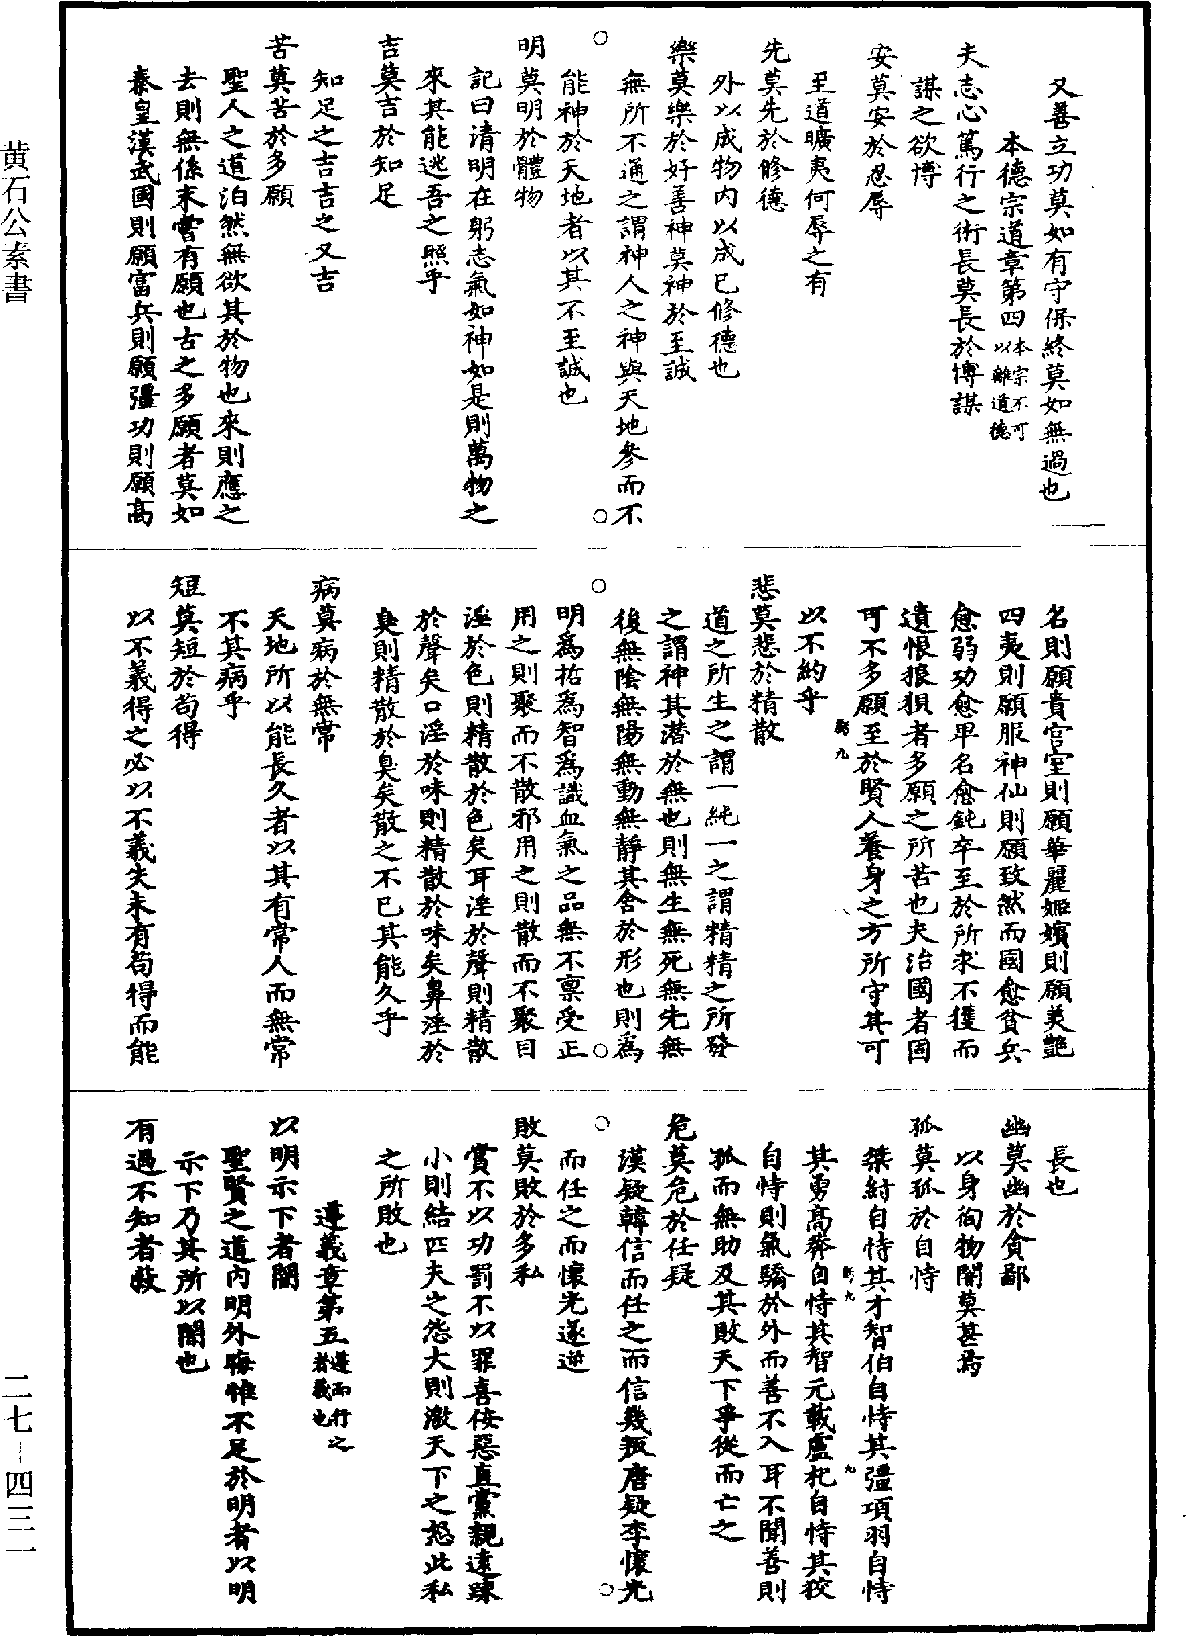 又善立功莫如有守保終莫如無過也
本德宗道章第四本宗不可以離道德
夫志心篤行之術長莫長於博謀
謀之欲博
安莫安於忍辱
至道曠夷何辱之有
先莫先於修德
外以成物內以成已修德也
樂莫樂於好善神莫神於至誠
無所不通之謂神人之神與天地參而不
能神於天地者以其不至誠也
明莫明於體物
記曰清明在躬志氣如神如是則萬物之
來其能逃吾之照乎
吉莫吉於知足
知足之吉吉之又吉
苦莫苦於多願
聖人之道泊然無欲其於物也來則應之
去則無係未嘗有願也古之多願者莫如
秦皇漢武國則願富兵則願彊功則願高
名則願貴宮室則願華麗姬嬪則願美艷
四夷則願服神仙則願致然而國愈貧兵
愈弱功愈卑名愈鈍卒至於所求不獲而
遺恨狼狽者多願之所苦也夫治國者固
可不多願至於賢人養身之方所守其可
以不約乎
悲莫悲於精散
道之所生之謂一純一之謂精精之所發
之謂神其潛於無也則無生無死無先無
後無陰無陽無動無靜其舍於形也則為
明為哲為智為識血氣之品無不稟受正
用之則聚而不散邪用之則散而不聚目
淫於色則精散於色矣耳淫於聲則精散
於聲矣口淫於味則精散於味矣鼻淫於
臭則精散於臭矣散之不已其能久乎
病莫病於無常
天地所以能長久者以其有常人而無常
不其病乎
短莫短於苟得
以不義得之必以不義失未有苟得而能
長也
幽莫幽於貪鄙
以身徇物闇莫甚焉
孤莫孤於自恃
桀紂自恃其才智伯自恃其彊項羽自恃
其勇高莽自恃其智元載盧杞自恃其狡
自恃則氣驕於外而善不入耳不聞善則
孤而無助及其敗天下爭從而亡之
危莫危於任疑
漢疑韓信而任之而信幾叛唐疑李懷光
而任之而懷光遂逆
敗莫敗於多私
賞不以功罰不以罪喜佞惡直黨親遠疎
小則結匹夫之怨大則激天下之怒此私
之所敗也
遵義章第五遵而行之者義也
以明示下者闇
聖賢之道內明外晦惟不足於明者以明
示下乃其所以闇也
有過不知者蔽
黃石公素書
二七-四三一